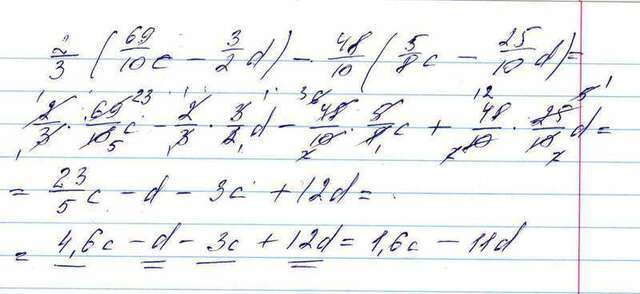 2/3 (69/10 c - 3/2 d) - 48/10 (5/8 c - 25/10 d) =
2/3 · 69/10 c - 2/3 · 3/2 d - 48/10 · 5/8 c + 48/10 · 25/10 d =
= 23/5 c - d - 3c + 12d =
= 4,6c - d - 3c + 12d = 1,6c - 11d